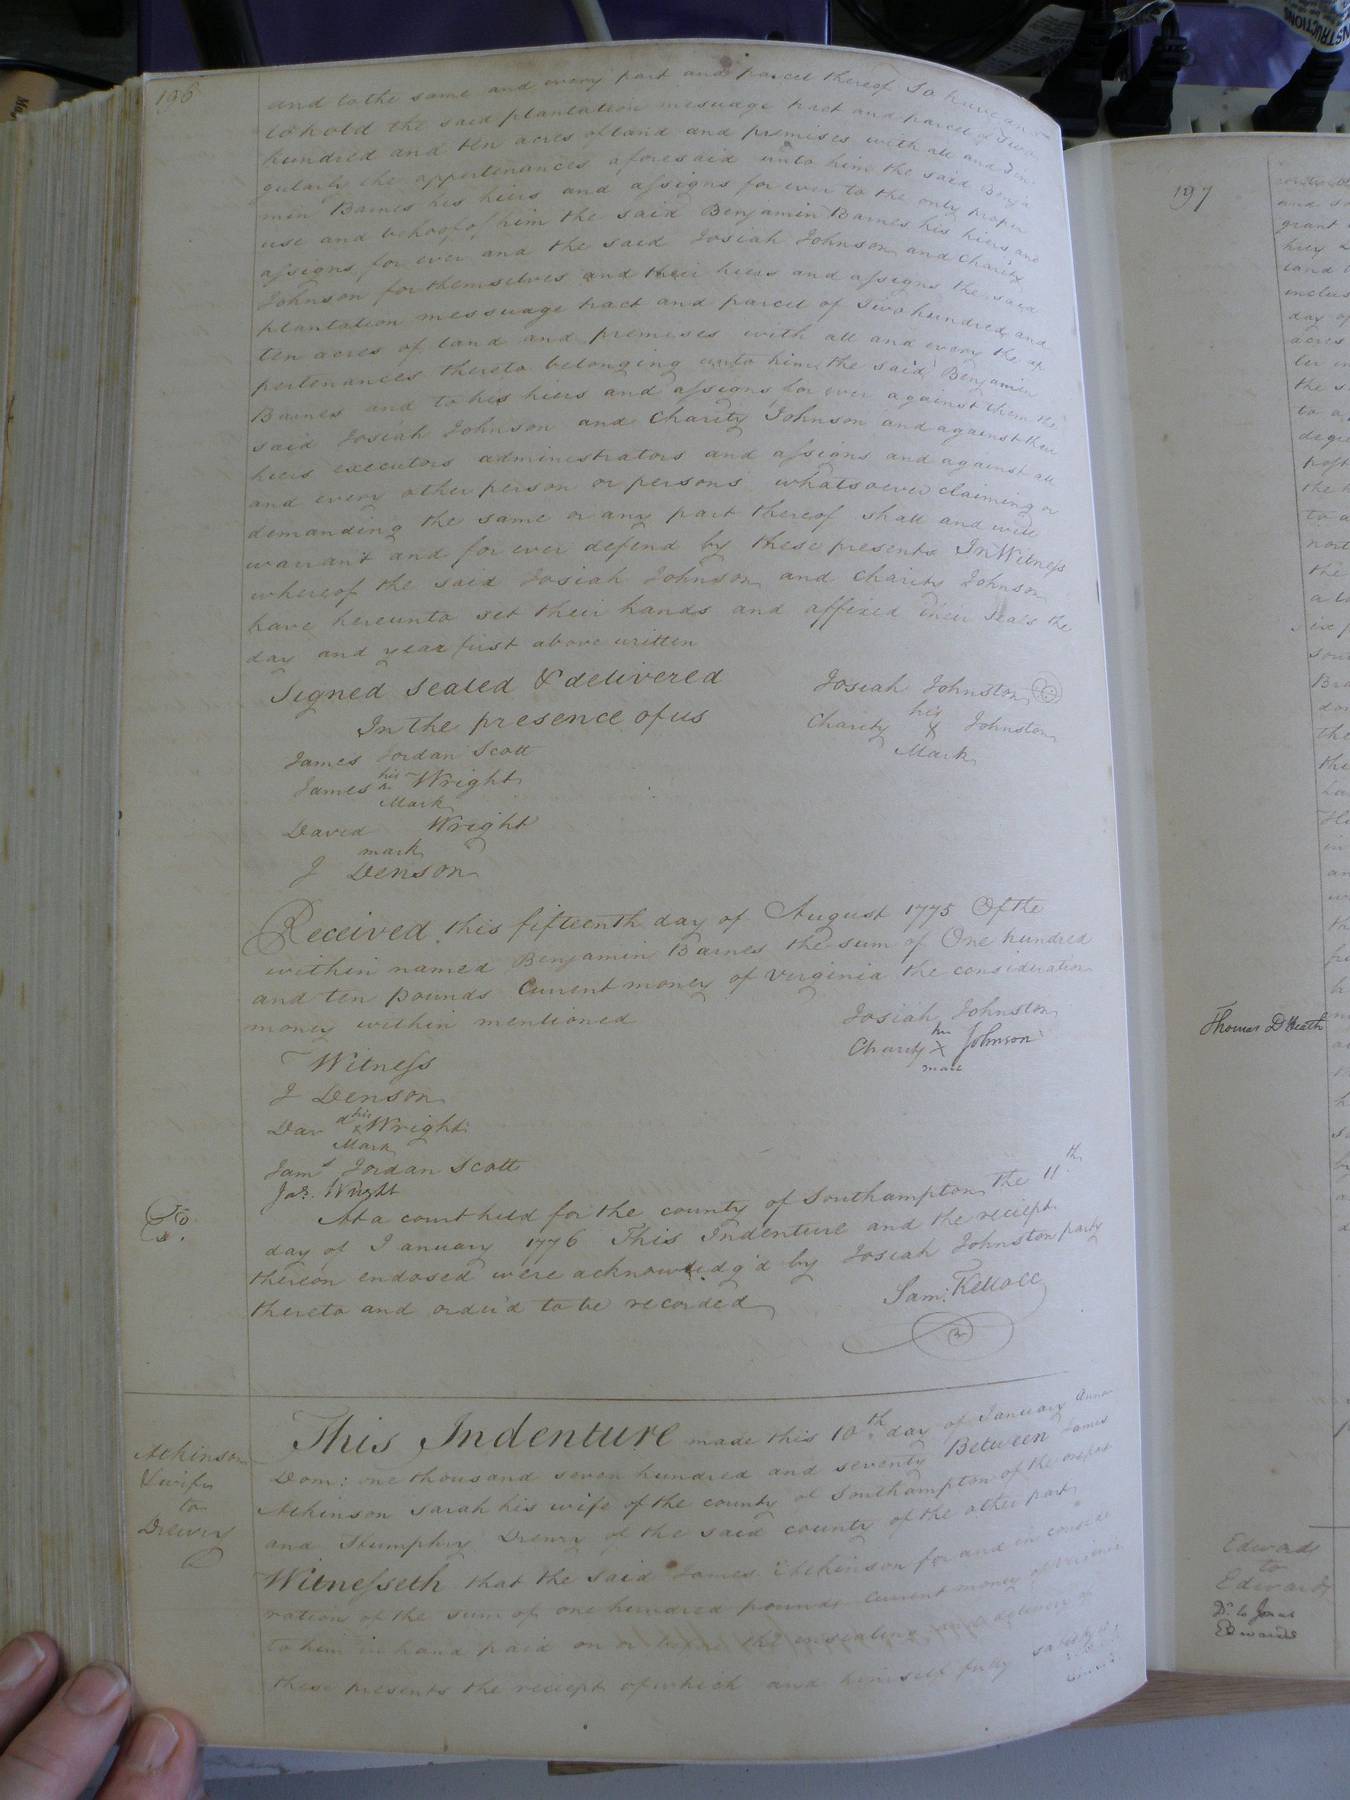 196
and to the same and every part and parcel thereof To have and
to hold the said plantation messuage tract and parcel of Two
hundred and ten acres of land and premises with all and Sin
gularly the appertenances aforesaid unto him the said Benja
min Barnes his hiers and assigns for ever to the only proper
use and behoof of him the said Benjamin Barnes his hiers and
assigns for ever and the said Josiah Johnson and Charity
Johnson for themselves and their hiers and assigns the said
plantation messuage tract and parcel of Two hundred and
ten acres of land and premises with all and every the ap
pertenances thereto belonging unto him the said Benjamin
Barnes and to his hiers and assigns for ever against them the
said Josiah Johnson and Charity Johnson and against their
hiers executors administrators and assigns and against all
and every other person or persons whatsoever claiming or
demanding the same or any part thereof shall and will
warrant and for ever defend by these presents In Witness
whereof the said Josiah Johnson and Charity Johnson
have hereunto set their hands and affixed their seals the
day and year first above written
Signed Sealed & delivered
In the presence of us
Josiah Johnston
Charity his X Johnston
Mark
James Jordan Scott
James his Wright
Mark
David Wright
mark
J Denson
Received this fifteenth day of August 1775 Of the
within named Benjamin Barnes the sum of One hundred
and ten pounds Current money of Virginia the consideration
money within mentioned
Josiah Johnston
Charity X Johnson
mark
Witness
J Denson
David his x Wright
Mark
Jams Jordan Scott
Jas. Wright
At a court held for the county of Southampton the 11th
day of January 1776 This Indenture and the reciept
thereon endosed were acknowledg'd by Josiah Johnston party
thereto and order'd to be recorded
Sam: Kello CC
Atkinson
& wife
to
Drewry
This Indenture made this 10th day of January Anno
Dom: one thousand seven hundred and seventy Between James
Atkinson Sarah his wife of the county of Southampton of the onepart
and Humphry Drewry of the said county of the other part
Witnesseth that the said James Atkinson for and in conside
ration of the sum of one hundred pounds Current money of Virginia
to him in hand paid on or before the ensealing and delivery of
these presents the reciept of which and himself fully satisfied
197
grant
land
inclus
day of
acres
the s
to
the
nort
the
Thomas D Heath
Edwards
to
Edwards
Dd to Jonas
Edwards